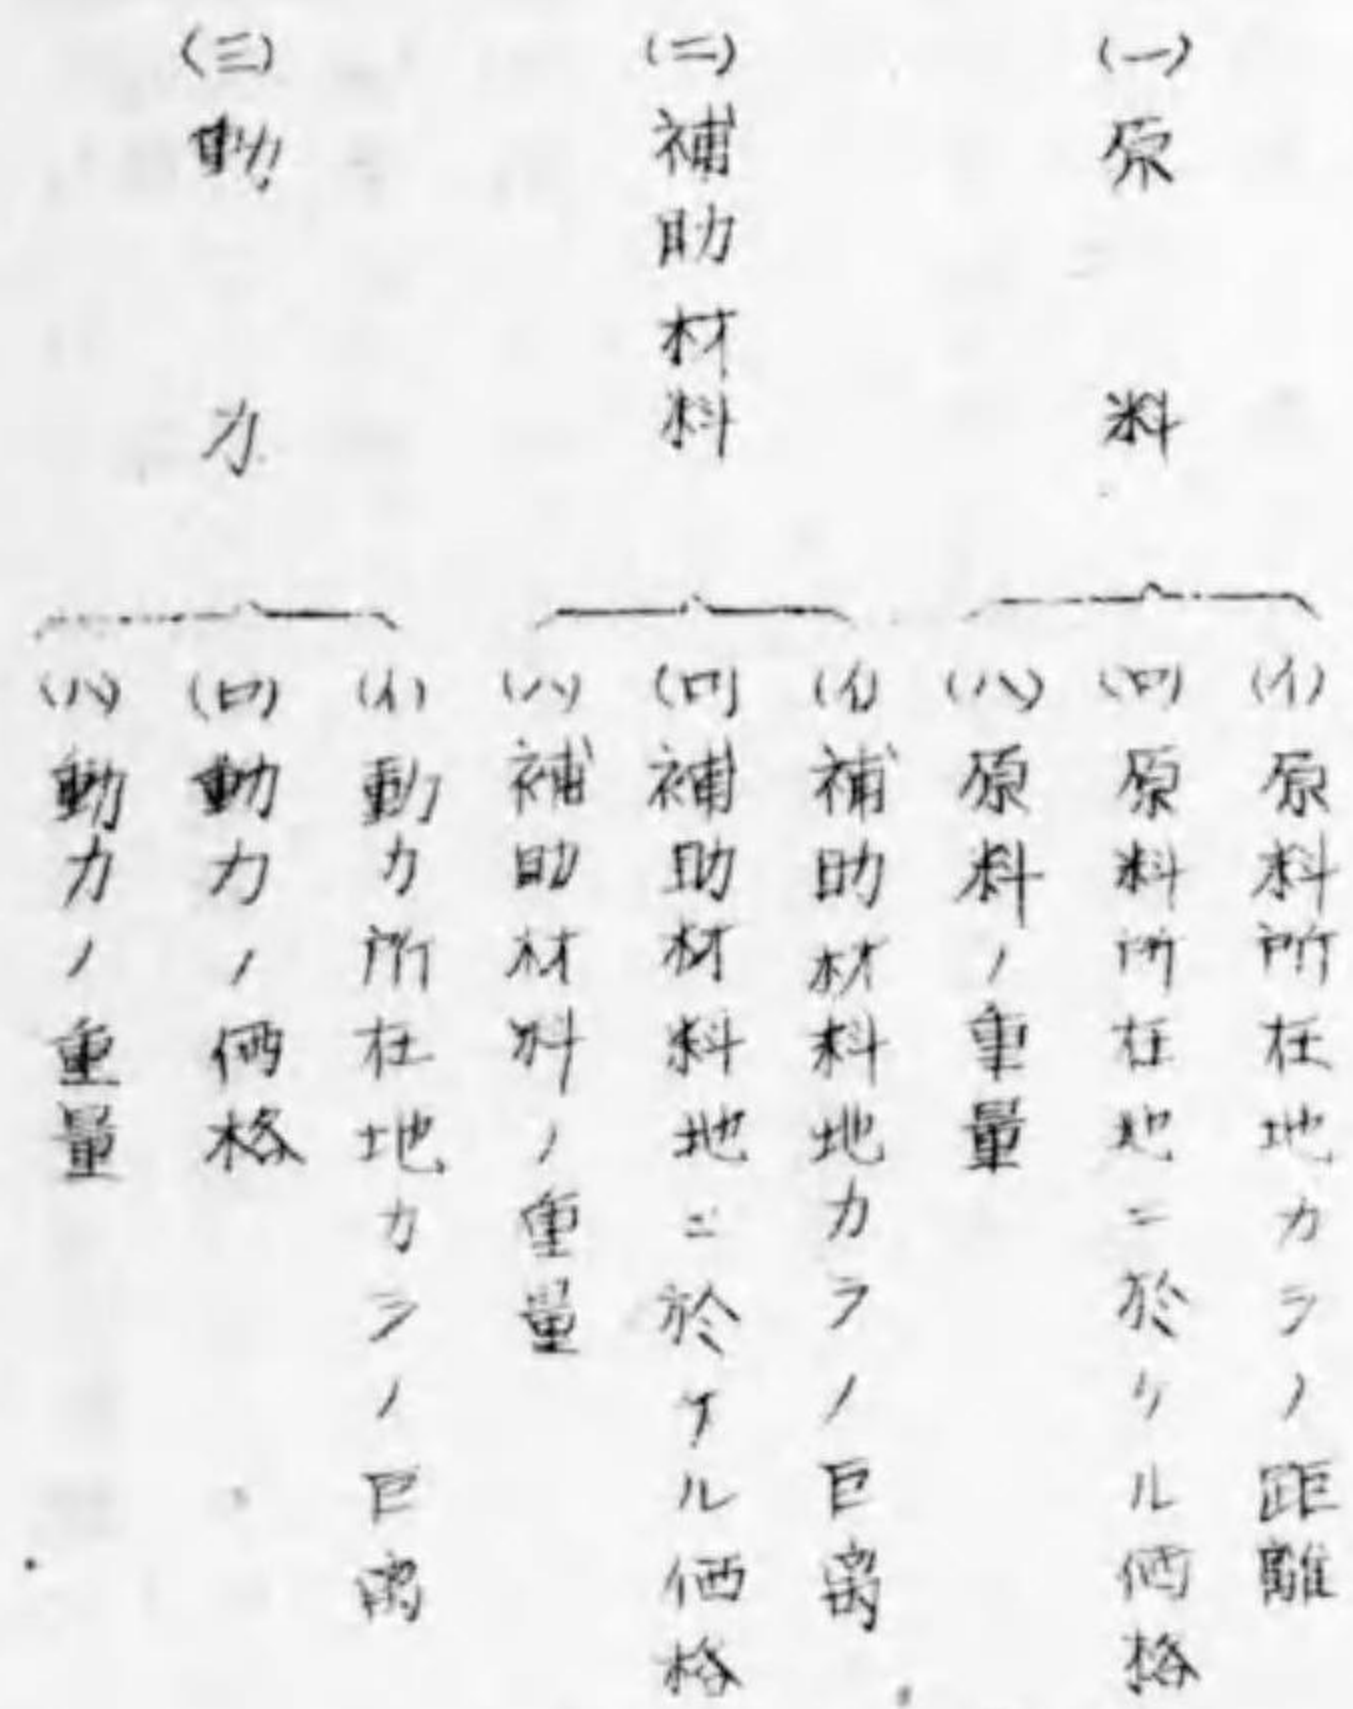 (一)原料
(イ)原料所在地カラノ距離
(ロ)原料所在地ニ於ケル価格
(ハ)原料ノ重量
(二)補助材料
(イ)補助材料地カラノ巨离
(ロ)補助材料地ニ於ケル価格
(ハ)補助材料ノ重量
(三)動力
(イ)動力所在地カラノ巨离
(ロ)動力ノ価格
(ハ)動力ノ重量